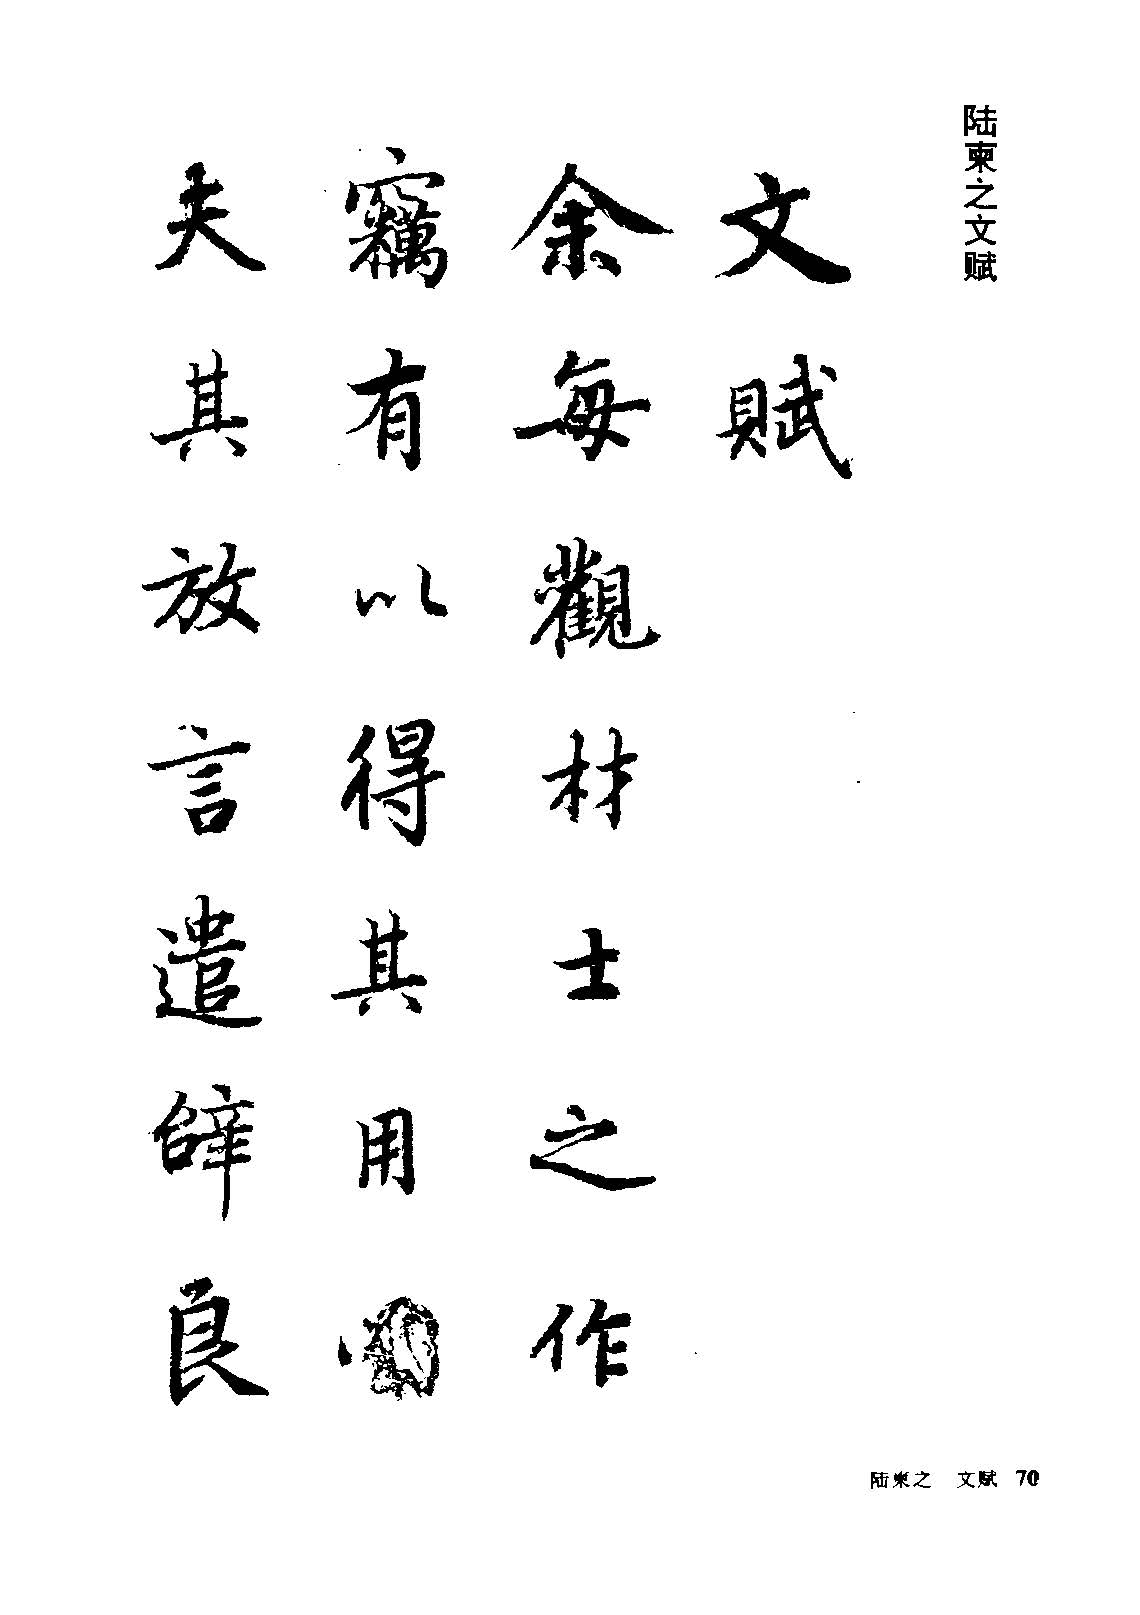 陆柬之文赋
文賦
余每觀材士之作
竊有以得其用
夫其放言遣辝良
陆柬之 文赋 70